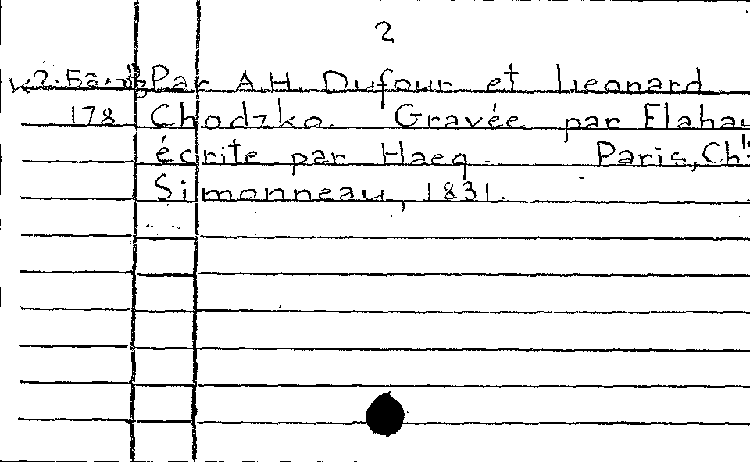 2
Par A.H. Dufour et Leonard
178 Chodzko. Gravée par Flahau
écrite par Hacq. Paris, Ch.
Simonneau, 1831.